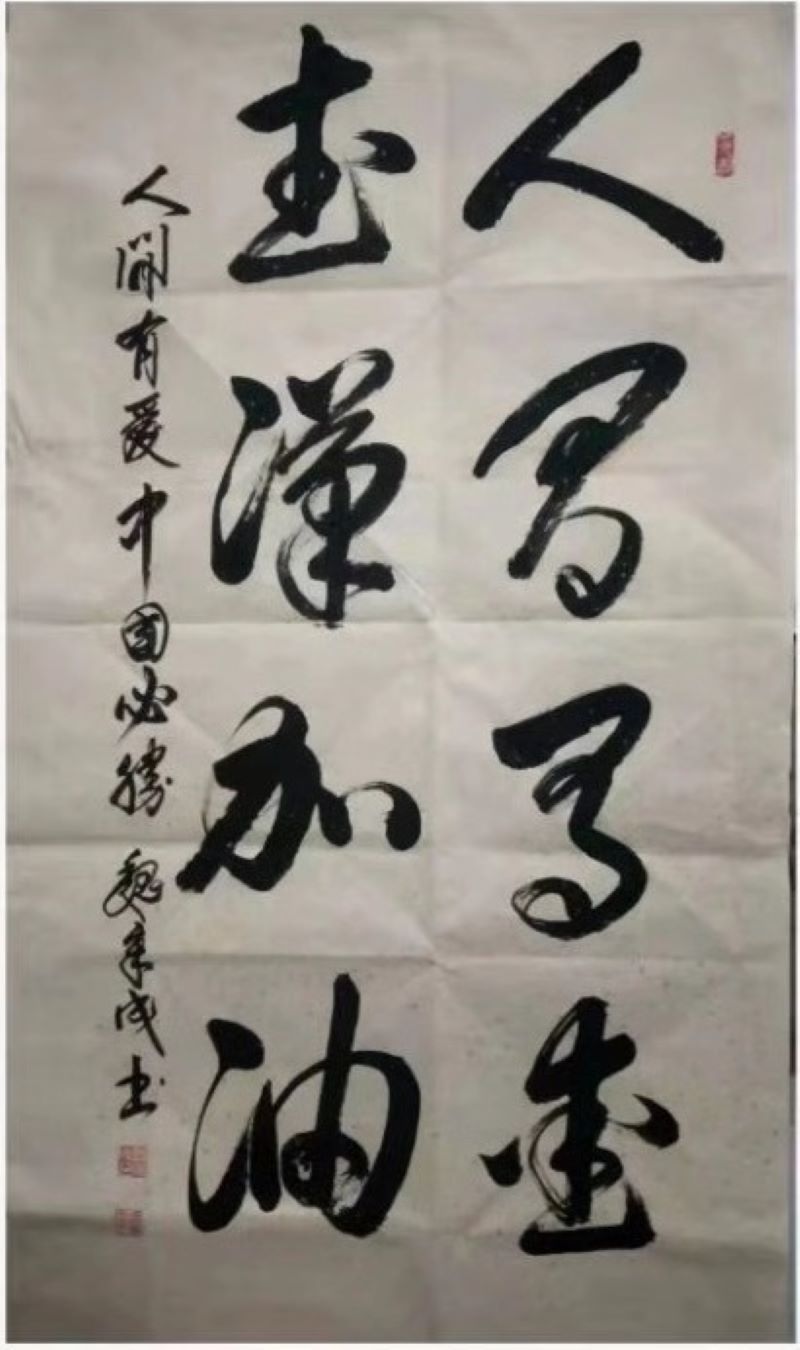 人間有愛
武漢加油
人間有愛中國必勝 魏成书